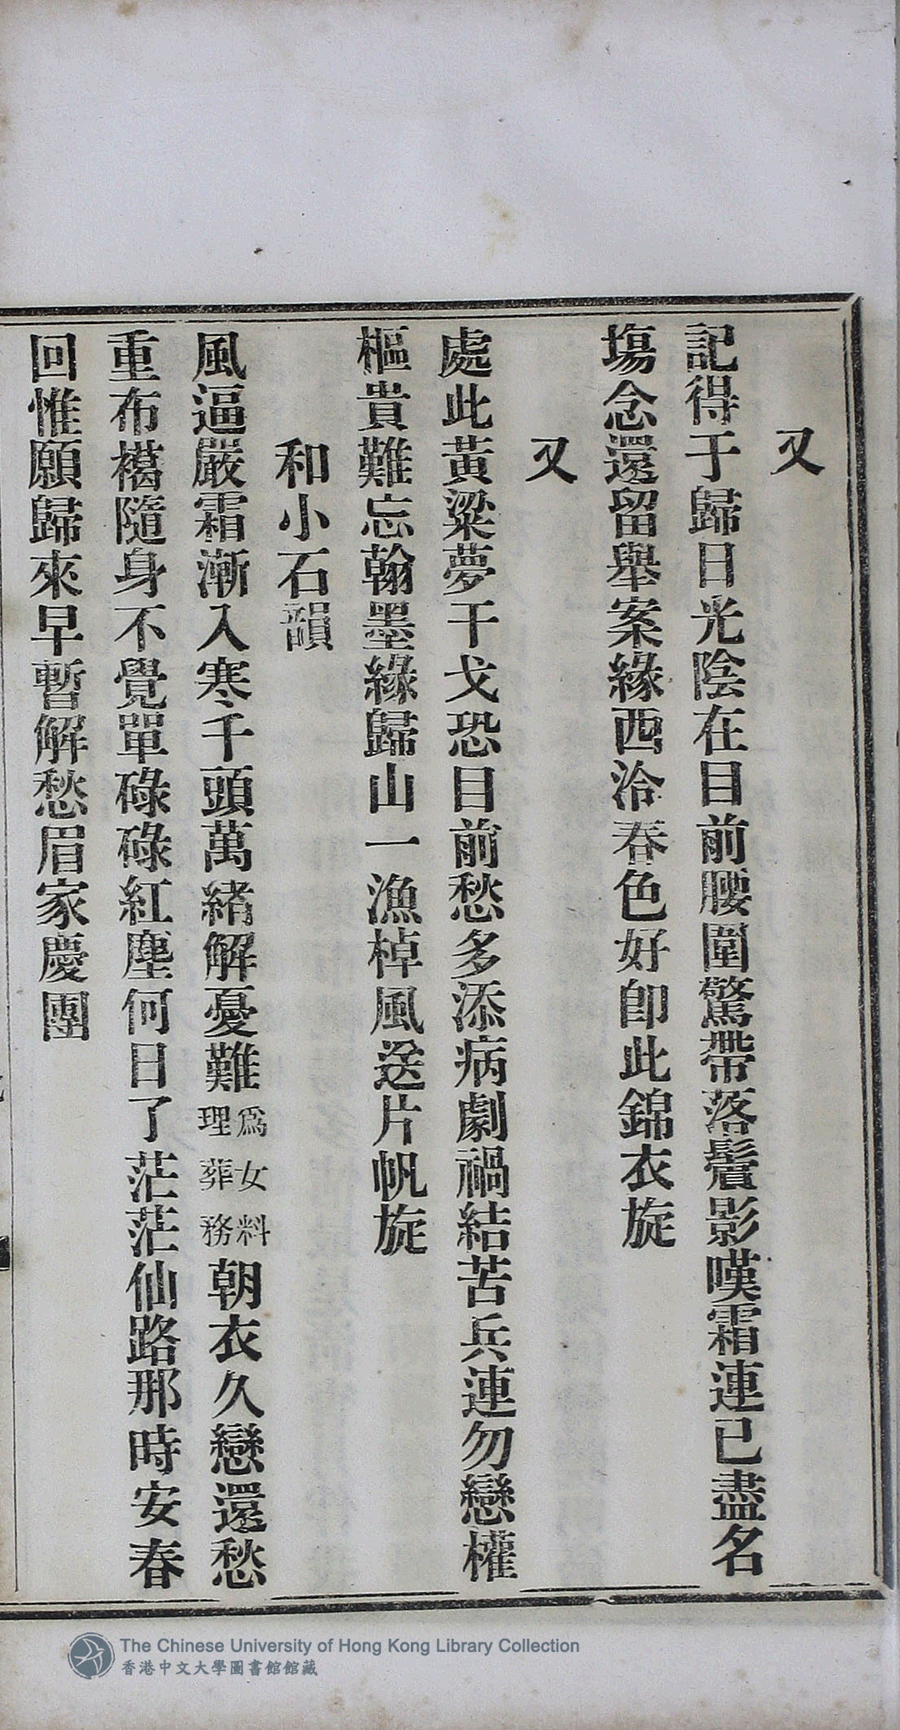 又
記得于歸日光陰在目前腰圍驚帶落鬢影嘆霜連已盡名
塲念還留舉案緣西洽春色好卽此錦衣旋
又
處此黃粱夢干戈恐目前愁多添病劇禍結苦兵連勿戀權
樞貴難忘翰墨緣歸山一漁棹風送片帆旋
和小石韻
風逼嚴霜漸入寒千頭萬緖解憂難爲女料理葬務朝衣久戀還愁
重布襪隨身不覺單碌碌紅塵何日了茫茫仙路那時安春
回惟願歸來早暫解愁眉家慶團
The Chinese University of Hong Kong Library Collection
香港中文大學圖書館館藏